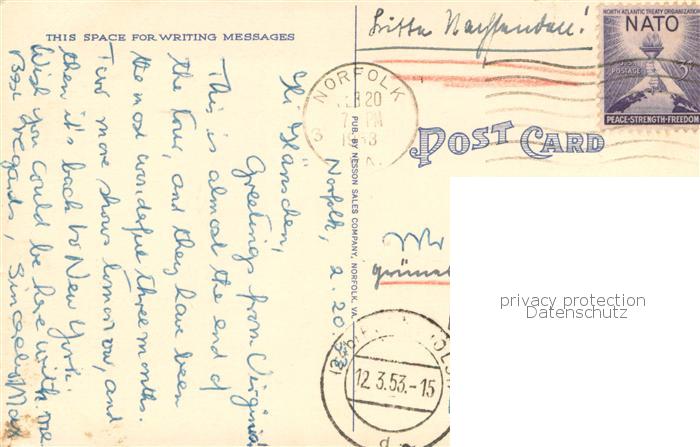 THIS SPACE FOR WRITING MESSAGES
Norfolk, 2.20.53
Hi Hänschen,
Greetings from Virginia!
This is almost the end of
the tour, and they have been
the most wonderful three months.
Two more shows tomorrow, and
then it's back to New York.
Wish you could be here with me
Best regards, Sincerely Max
PUB. BY NESSON SALES COMPANY, NORFOLK, VA.
Bitte Nachsenden!
NORTH ATLANTIC TREATY ORGANIZATION
NATO
U.S. POSTAGE 3¢
PEACE-STRENGTH-FREEDOM
NORFOLK
FEB 20
PM
1953
3 VA.
POST CARD
Mr
Grüne
12.3.53.-15
d
privacy protection
Datenschutz